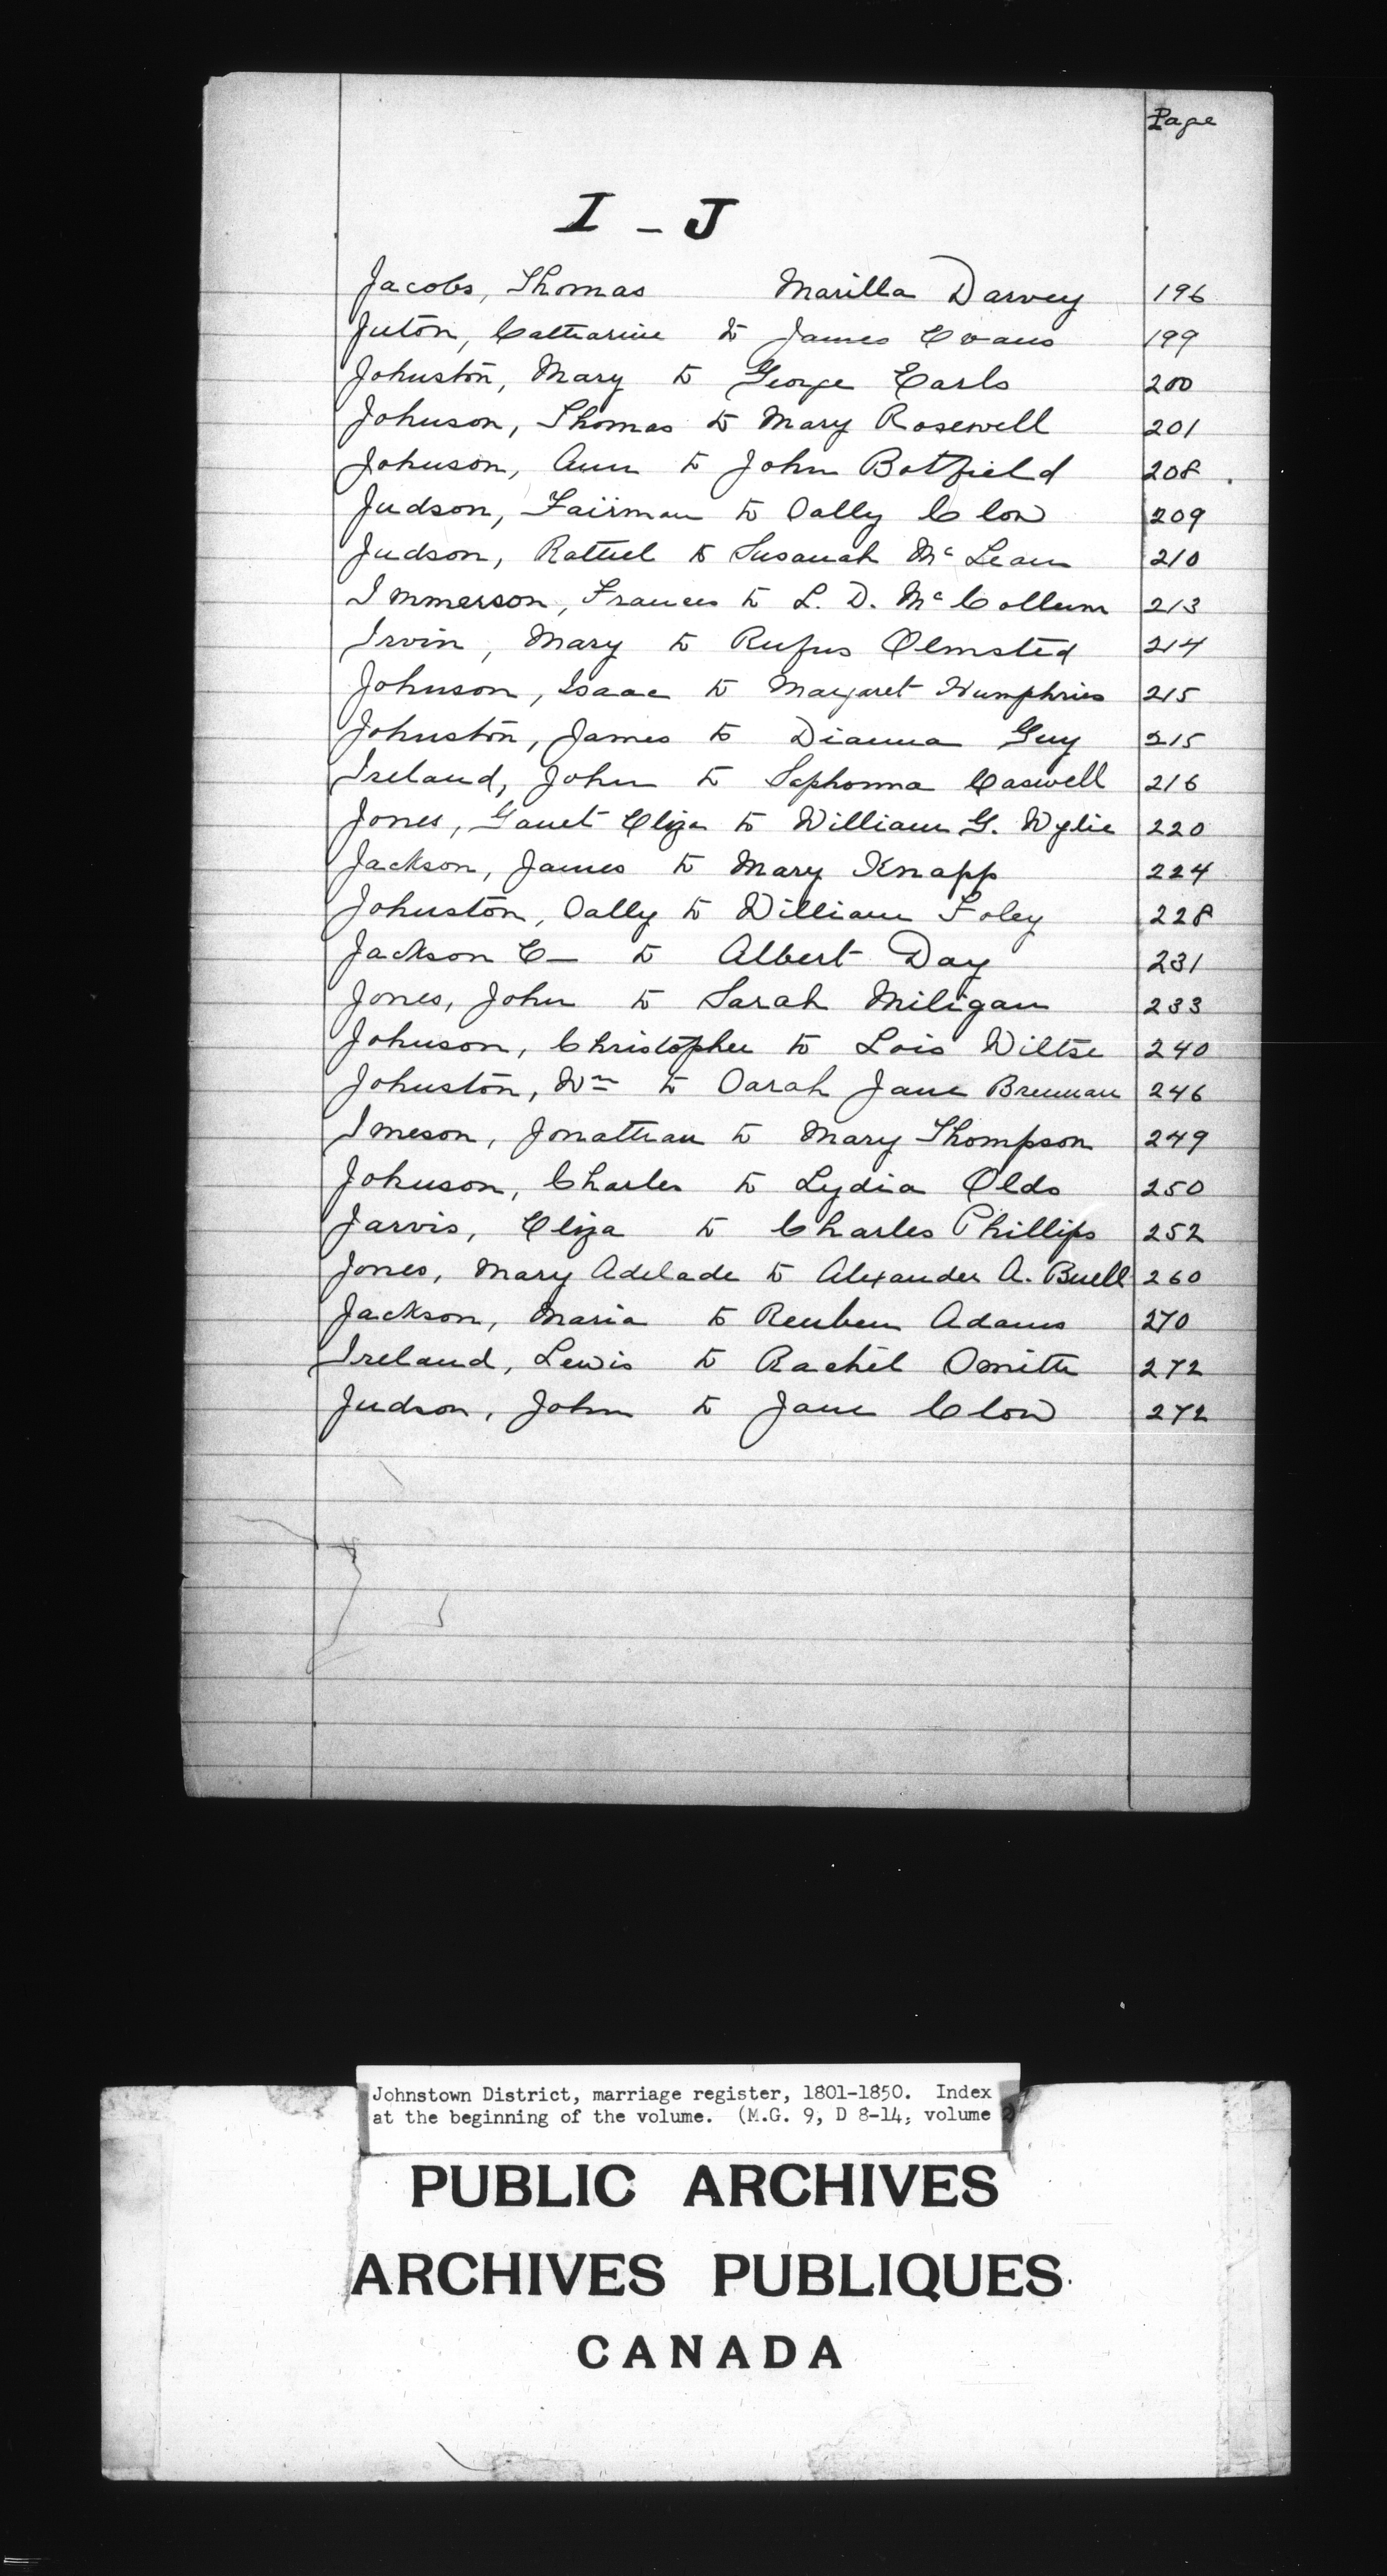 Page
I - J
Jacobs, Thomas Marilla Darvey 196
Juton, Catharine to James Evans 199
Johnston, Mary to George Earls 200
Johnson, Thomas to Mary Rosewell 201
Johnson, Ann to John Botfield 208
Judson, Fairman to Sally Clow 209
Judson, Rattiel to Susanah Mc Lean 210
Immerson, Frances to L. D. Mc Collum 213
Irvin, Mary to Rufus Olmsted 214
Johnson, Isaac to Margaret Humphries 215
Johnston, James to Dianna Guy 215
Ireland, John to Sephonna Caswell 216
Jones, Ganet Eliza to William G. Wylie 220
Jackson, James to Mary Knapp 224
Johnston, Sally to William Foley 228
Jackson E— to Albert Day 231
Jones, John to Sarah Miligan 233
Johnson, Christopher to Lois Wiltse 240
Johnston, Wm to Sarah Jane Brennan 246
Imeson, Jonathan to Mary Thompson 249
Johnson, Charles to Lydia Olds 250
Jarvis, Eliza to Charles Phillips 252
Jones, Mary Adelade to Alexander A. Buell 260
Jackson, Maria to Reuben Adams 270
Ireland, Lewis to Rachel Smith 272
Judson, John to Jane Clow 272
Johnstown District, marriage register, 1801-1850. Index
at the beginning of the volume. (M.G. 9, D 8-14, volume
PUBLIC ARCHIVES
ARCHIVES PUBLIQUES
CANADA